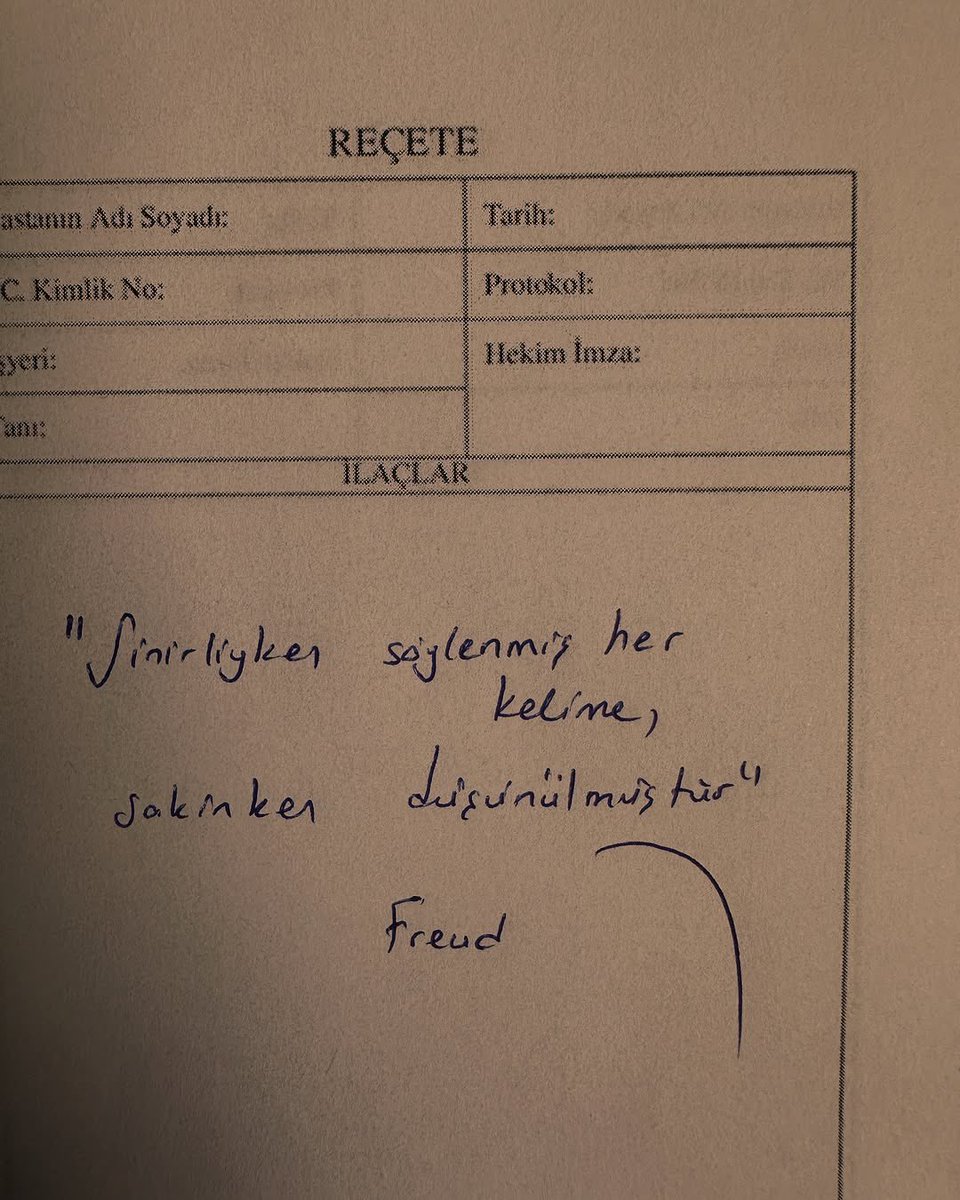 REÇETE
astanın Adı Soyadı:
Tarih:
C. Kimlik No:
Protokol:
şyeri:
Hekim İmza:
anı:
İLAÇLAR
"Sinirliyken söylenmiş her
kelime,
sakinken düşünülmüştür"
Freud